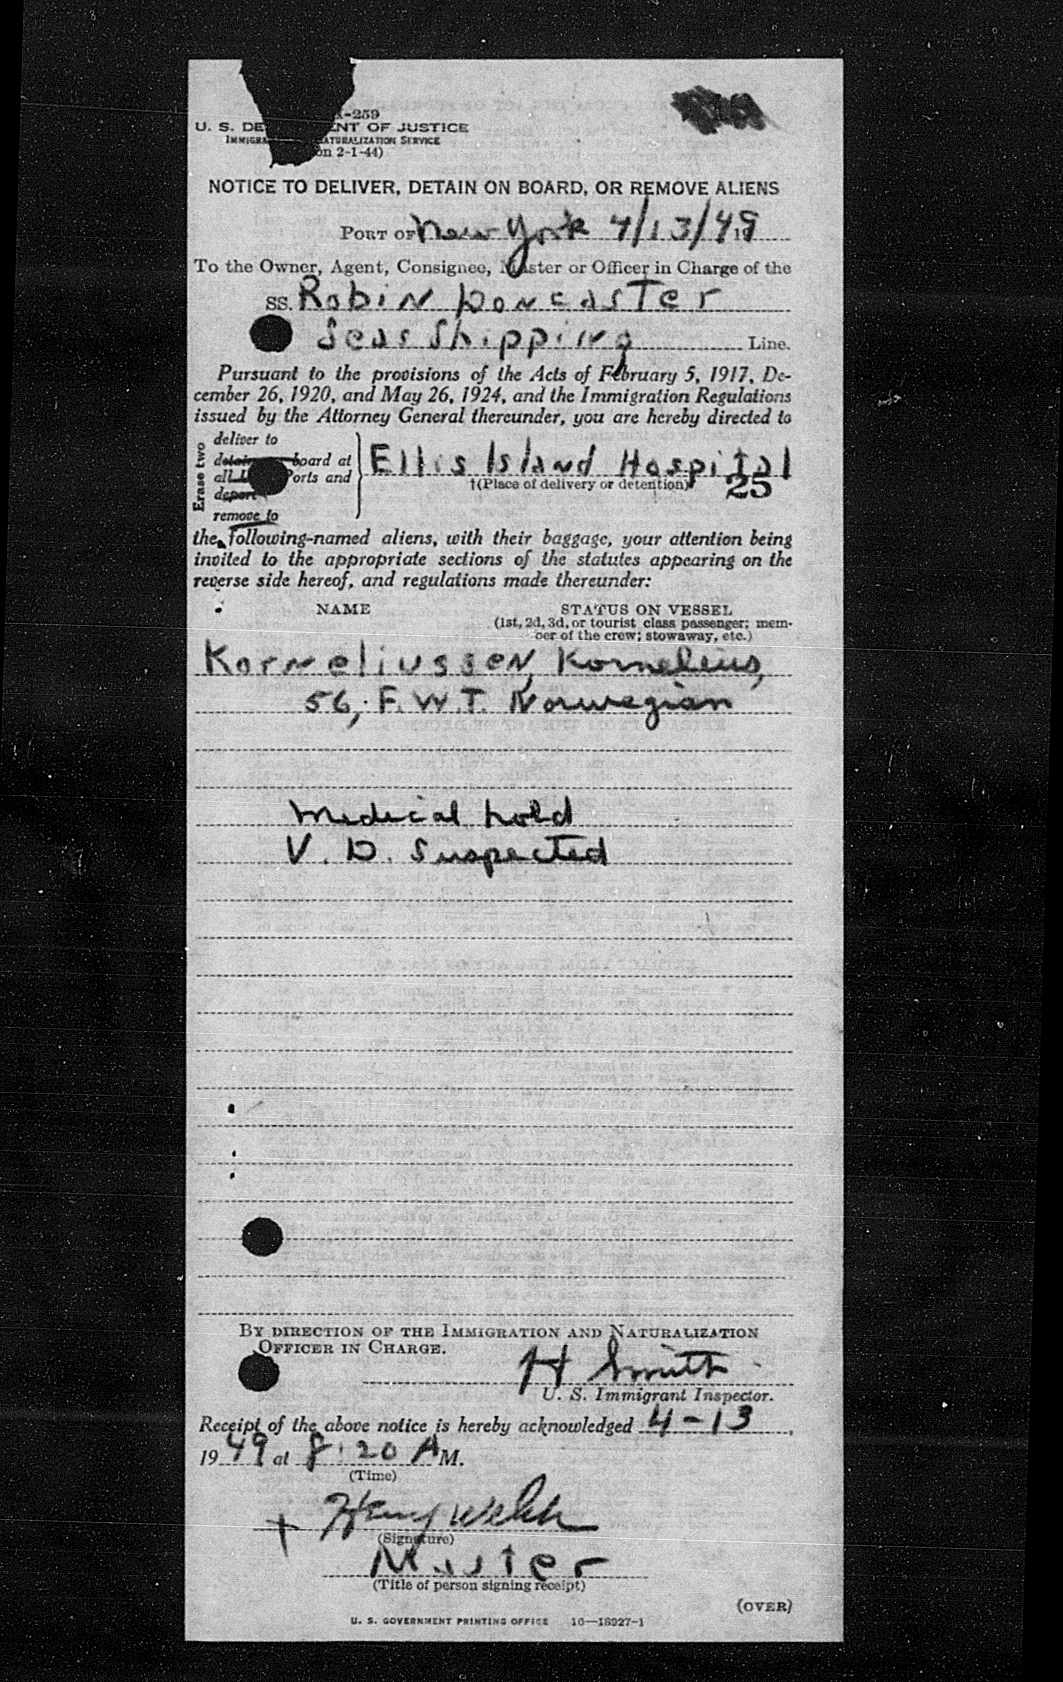 -259
U. S. DE NT OF JUSTICE
IMMIGRA ATURALIZATION SERVICE
on 2-1-44)
NOTICE TO DELIVER, DETAIN ON BOARD, OR REMOVE ALIENS
PORT OF New York 4/13/49
To the Owner, Agent, Consignee, Master or Officer in Charge of the
SS. Robin Doncaster
Seas Shipping Line.
Pursuant to the provisions of the Acts of February 5, 1917, De-
cember 26, 1920, and May 26, 1924, and the Immigration Regulations
issued by the Attorney General thereunder, you are hereby directed to
Erase two
deliver to
detain board at
all orts and
deport
remove to
Ellis Island Hospital
†(Place of delivery or detention)
25
the following-named aliens, with their baggage, your attention being
invited to the appropriate sections of the statutes appearing on the
reverse side hereof, and regulations made thereunder:
NAME STATUS ON VESSEL
(1st, 2d, 3d, or tourist class passenger; mem-
ber of the crew; stowaway, etc.)
Korneliussen, Kornelius,
56, F.W.T. Norwegian
Medical hold
V. D. Suspected
BY DIRECTION OF THE IMMIGRATION AND NATURALIZATION
OFFICER IN CHARGE.
H Smith
U. S. Immigrant Inspector.
Receipt of the above notice is hereby acknowledged 4-13,
1949 at 8:20 A M.
(Time)
Henry Welch
(Signature)
Master
(Title of person signing receipt)
(OVER)
U. S. GOVERNMENT PRINTING OFFICE 16—18927-1